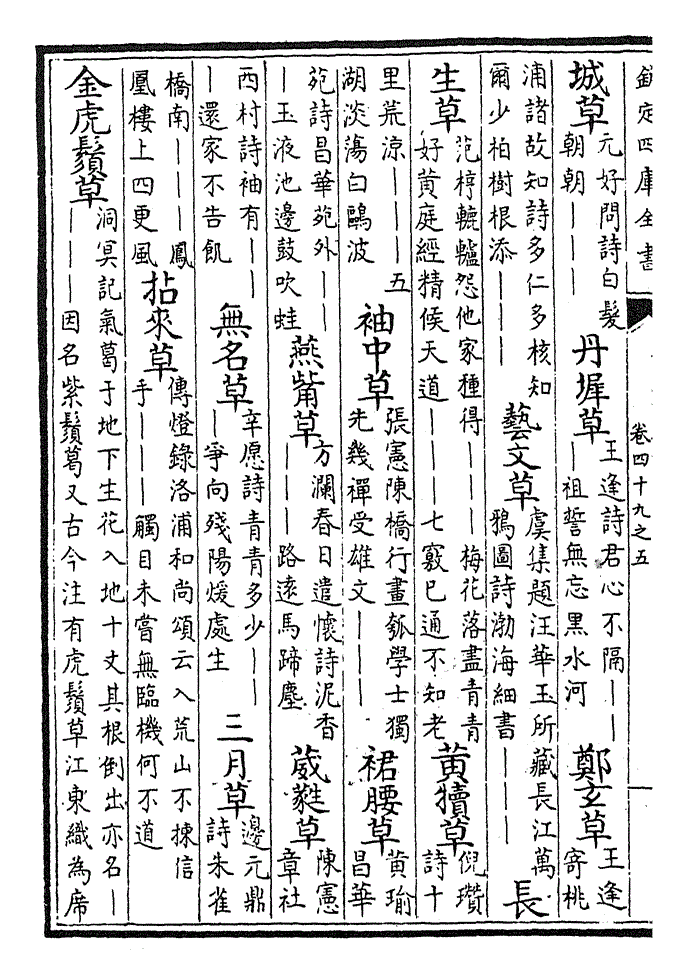 欽定四庫全書 卷四十九之五
城草 元好問詩白髮朝朝｜｜ 丹墀草 王逢詩君心不隔｜｜｜祖誓無忘黑水河 鄭玄草 王逢寄桃
浦諸故知詩多仁多核知爾少柏樹根添｜｜｜ 藝文草 虞集題汪華玉所藏長江萬鴉圖詩渤海細書｜｜｜ 長
生草 范梈轆轤怨他家種得｜｜｜梅花落盡青青好黄庭經精候天道｜｜｜七竅已通不知老 黄犢草 倪瓚詩十
里荒涼｜｜｜五湖淡蕩白鷗波 袖中草 張憲陳橋行畫瓠學士獨先幾禪受雄文｜｜｜ 裙腰草 黄瑜昌華
苑詩昌華苑外｜｜｜玉液池邊鼓吹蛙 燕觜草 方瀾春日遣懷詩泥香｜｜｜路遠馬蹄塵 葳蕤草 陳憲章社
西村詩袖有｜｜｜還家不告飢 無名草 辛愿詩青青多少｜｜｜爭向殘陽煖處生 三月草 邊元鼎詩朱雀
橋南｜｜｜鳳凰樓上四更風 拈來草 傳燈錄洛浦和尚頌云入荒山不揀信手｜｜｜觸目未嘗無臨機何不道
金虎鬚草 洞冥記氣葛于地下生花入地十丈其根倒出亦名｜｜｜｜因名紫鬚葛又古今注有虎鬚草江東織為席